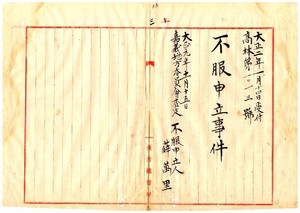 大正二年一月十四日受付
高林第一一三號
不服申立事件
大正元年十二月十五日
嘉義地方委員會査定
不服申立人
薛萬里